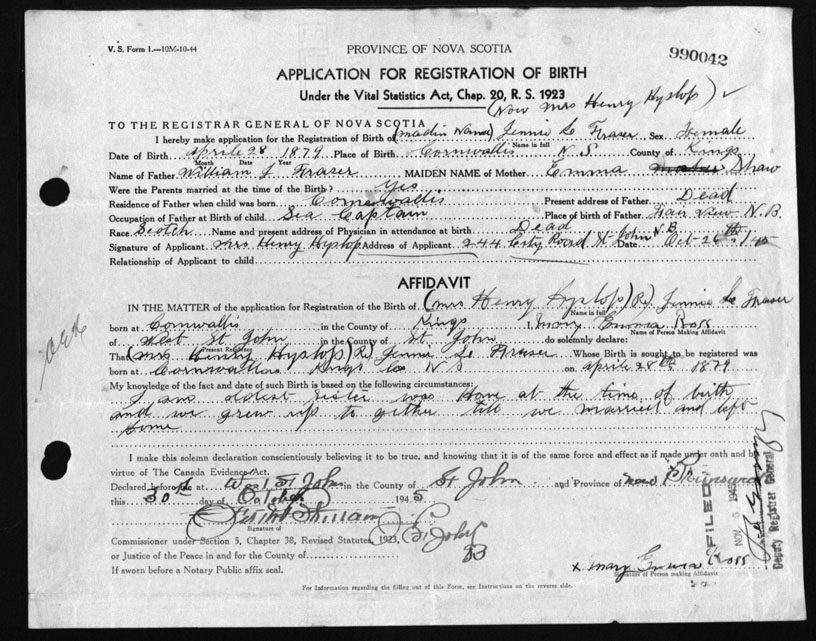 V. S. Form 1.—10M-10-44
PROVINCE OF NOVA SCOTIA
990042
APPLICATION FOR REGISTRATION OF BIRTH
Under the Vital Statistics Act, Chap. 20, R. S. 1923
(Now Mrs Henry Hyslop) ✓
TO THE REGISTRAR GENERAL OF NOVA SCOTIA
I hereby make application for the Registration of Birth of (madin Name) Jennie Le Fraser Sex Female
Name in full
Date of Birth april 28 1879 Place of Birth Cornwallis N. S County of Kings
Month Date Year
Name of Father William L Fraser MAIDEN NAME of Mother Emma Shaw
Were the Parents married at the time of the Birth? Yes
Residence of Father when child was born Cornwallis Present address of Father Dead
Occupation of Father at Birth of child Sea Captain Place of birth of Father Fair View N. B.
Race Scotch Name and present address of Physician in attendance at birth Dead
Signature of Applicant Mrs Henry Hyslop Address of Applicant 244 Road St John N.B. Date Oct 26th 1945
Relationship of Applicant to child
AFFIDAVIT
IN THE MATTER of the application for Registration of the Birth of (Mrs Henry Hyslop) Jennie Le Fraser
Name in full
born at Cornwallis in the County of Kings I, Mary Emma Ross
Name of Person Making Affidavit
of West St John in the County of St. John do solemnly declare:
Present Residence
That (Mrs Henry Hyslop) Jennie Le Fraser Whose Birth is sought to be registered was
born at Cornwallis Kings Co N S on april 28th 1879
My knowledge of the fact and date of such Birth is based on the following circumstances:
I am oldest sister was Home at the time of birth
and we grew up to gether till we married and left
home
I make this solemn declaration conscientiously believing it to be true, and knowing that it is of the same force and effect as if made under oath and by
virtue of The Canada Evidence Act.
Declared before me at West St John in the County of St John and Province of New Brunswick
this 30th day of October 1945
Signature of
Commissioner under Section 5, Chapter 38, Revised Statutes, 1923, St John
NB
or Justice of the Peace in and for the County of
If sworn before a Notary Public affix seal.
x Mary Emma Ross
Signature of Person making Affidavit
For Information regarding the filling out of this Form, see Instructions on the reverse side.
FILED
NOV 5 1945
Deputy Registrar General